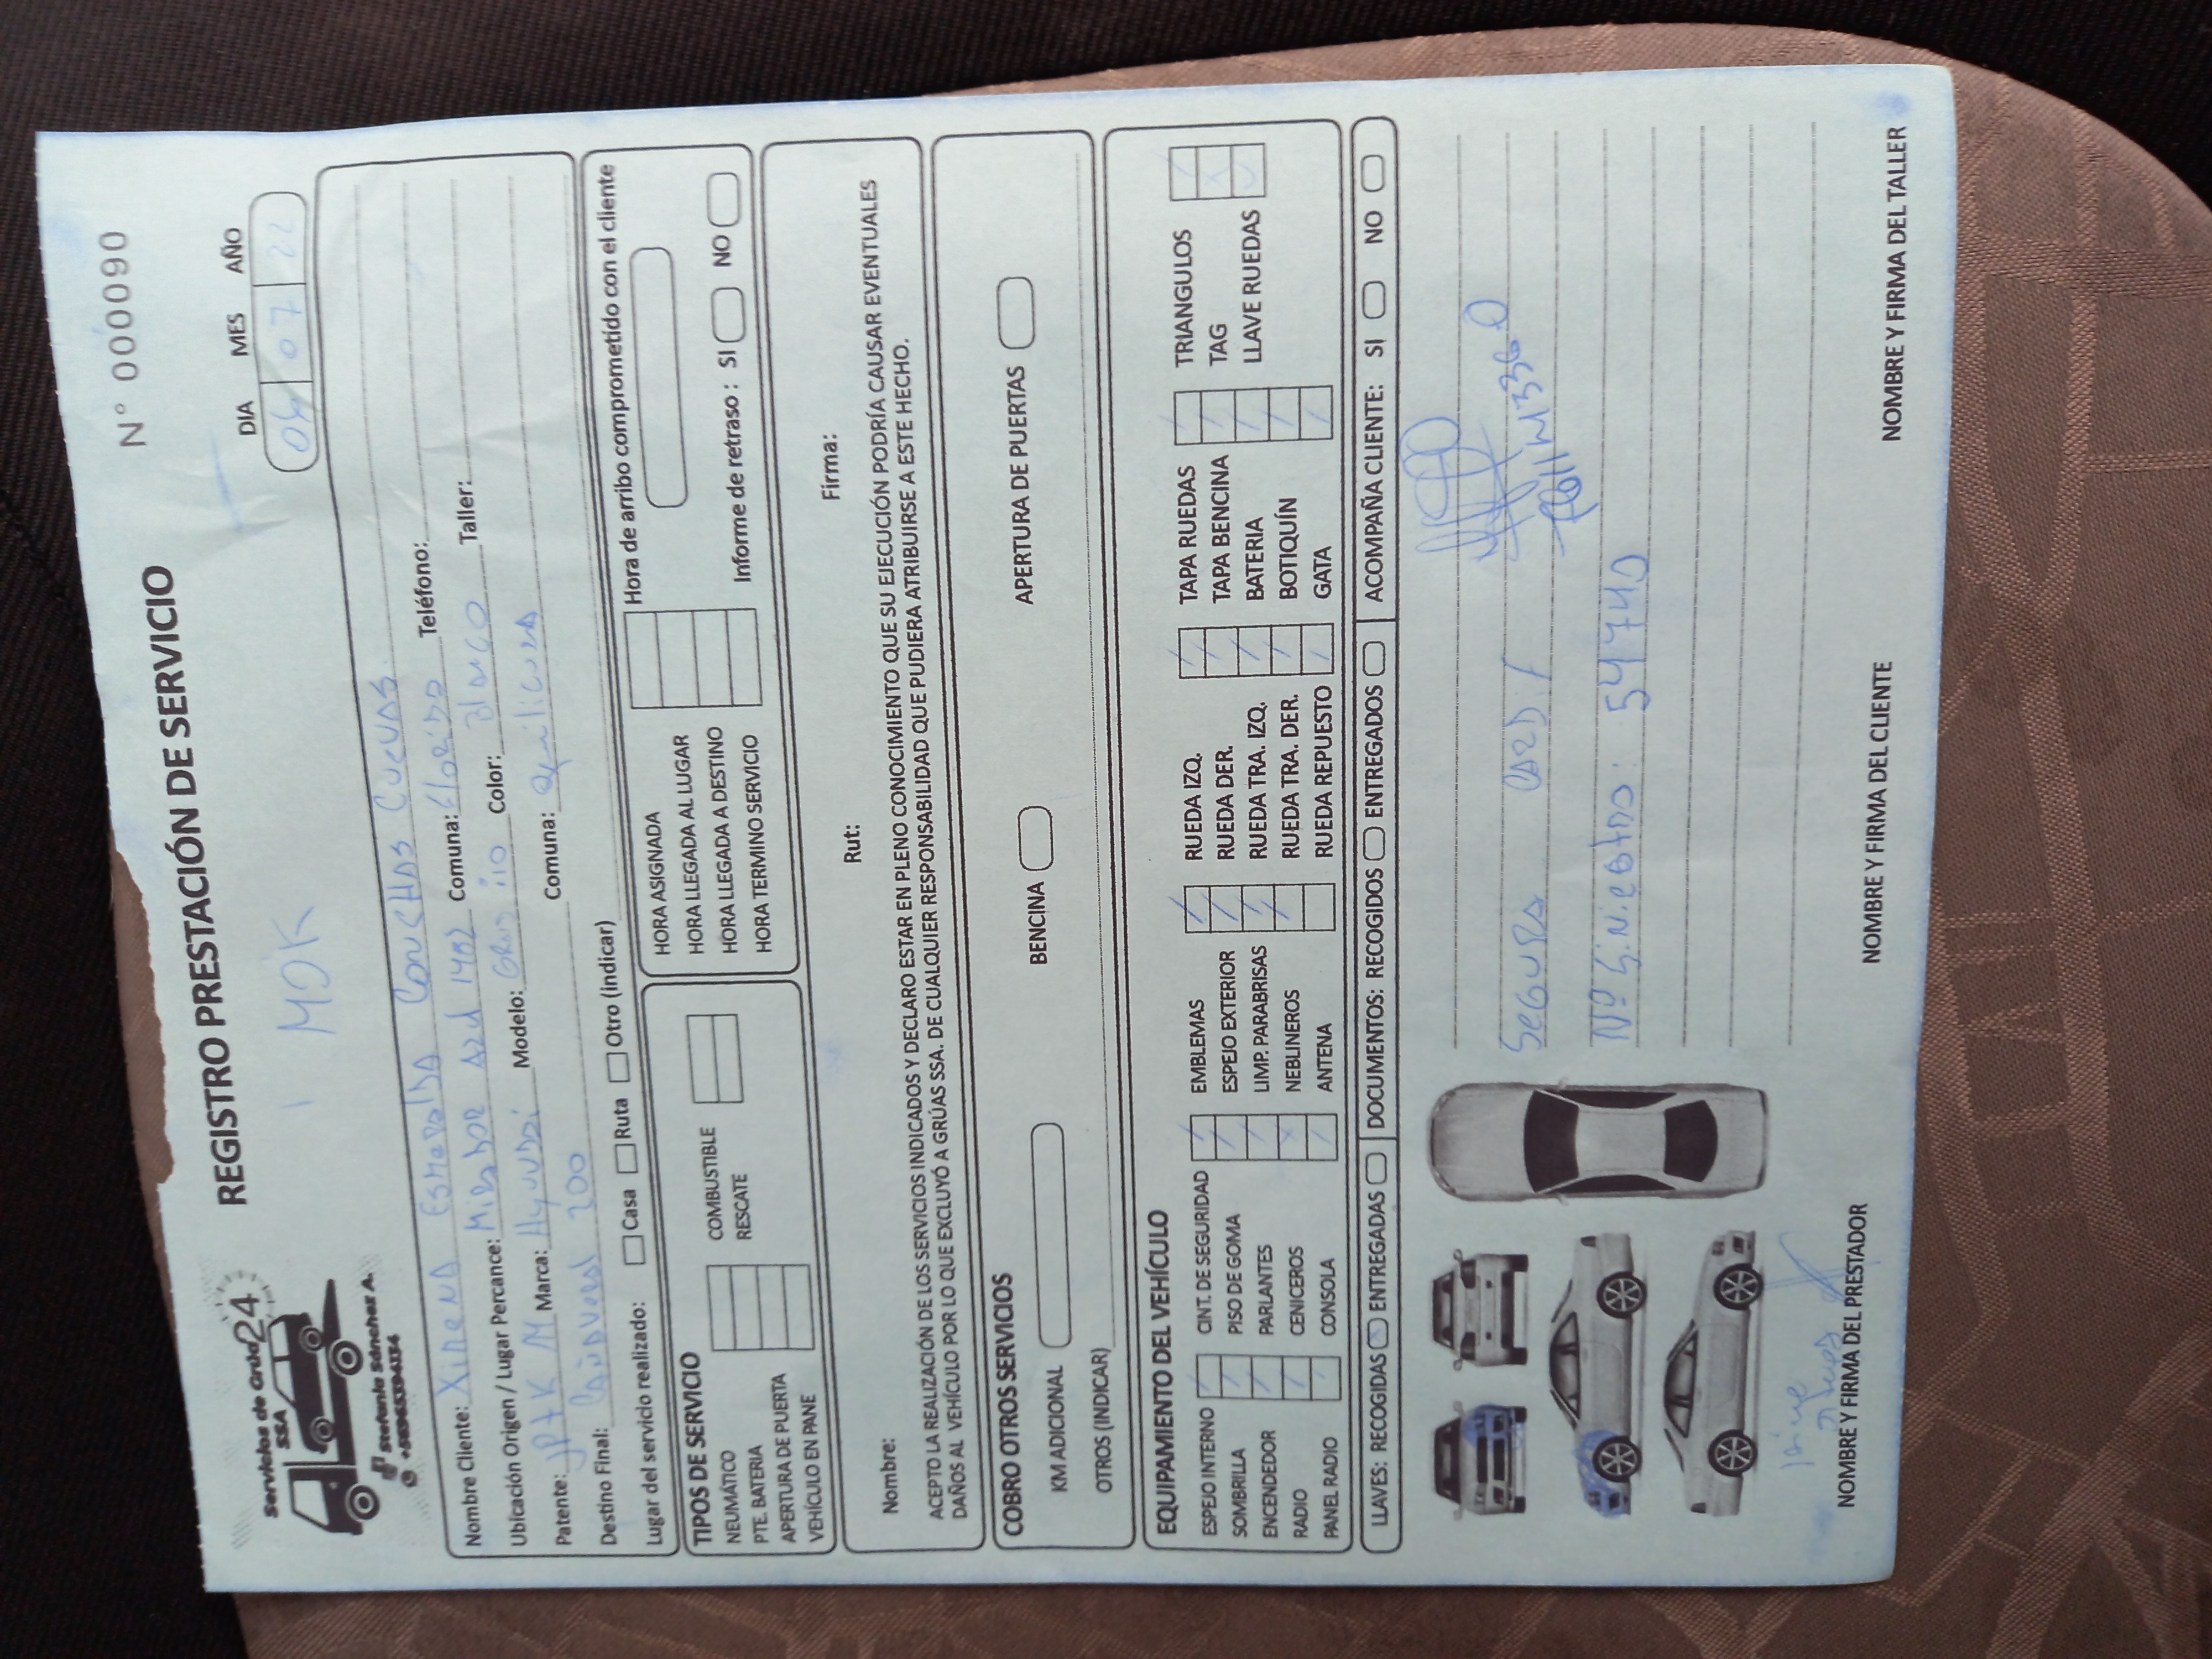 Servicios de Grúa 24
SSA
Stefania Sánchez A.
+56963394134
REGISTRO PRESTACIÓN DE SERVICIO
N° 000090
MOK
DIA MES AÑO
07 22
Nombre Cliente: Ximena Esmeralda Conchas Cuevas.
Ubicación Origen / Lugar Percance: Mirador Azul 1492 Comuna: Florida Teléfono:
Patente: Marca: Hyundai Modelo: Gran i10 Color: Blanco Taller:
Destino Final: Cañaveral 200 Comuna: Quilicura
Lugar del servicio realizado: Casa Ruta Otro (indicar)
TIPOS DE SERVICIO
NEUMÁTICO
PTE. BATERIA
APERTURA DE PUERTA
VEHÍCULO EN PANE
COMBUSTIBLE
RESCATE
HORA ASIGNADA
HORA LLEGADA AL LUGAR
HORA LLEGADA A DESTINO
HORA TERMINO SERVICIO
Hora de arribo comprometido con el cliente
Informe de retraso : SI NO
Nombre: Rut: Firma:
ACEPTO LA REALIZACIÓN DE LOS SERVICIOS INDICADOS Y DECLARO ESTAR EN PLENO CONOCIMIENTO QUE SU EJECUCIÓN PODRÍA CAUSAR EVENTUALES
DAÑOS AL VEHÍCULO POR LO QUE EXCLUYÓ A GRÚAS SSA. DE CUALQUIER RESPONSABILIDAD QUE PUDIERA ATRIBUIRSE A ESTE HECHO.
COBRO OTROS SERVICIOS
KM ADICIONAL BENCINA APERTURA DE PUERTAS
OTROS (INDICAR)
EQUIPAMIENTO DEL VEHÍCULO
ESPEJO INTERNO CINT. DE SEGURIDAD EMBLEMAS RUEDA IZQ. TAPA RUEDAS TRIANGULOS
SOMBRILLA PISO DE GOMA ESPEJO EXTERIOR RUEDA DER. TAPA BENCINA TAG
ENCENDEDOR PARLANTES LIMP. PARABRISAS RUEDA TRA. IZQ. BATERIA LLAVE RUEDAS
RADIO CENICEROS NEBLINEROS RUEDA TRA. DER. BOTIQUÍN
PANEL RADIO CONSOLA ANTENA RUEDA REPUESTO GATA
LLAVES: RECOGIDAS ENTREGADAS DOCUMENTOS: RECOGIDOS ENTREGADOS ACOMPAÑA CLIENTE: SI NO
Segura
Nº Siniestro: 54740
NOMBRE Y FIRMA DEL PRESTADOR NOMBRE Y FIRMA DEL CLIENTE NOMBRE Y FIRMA DEL TALLER